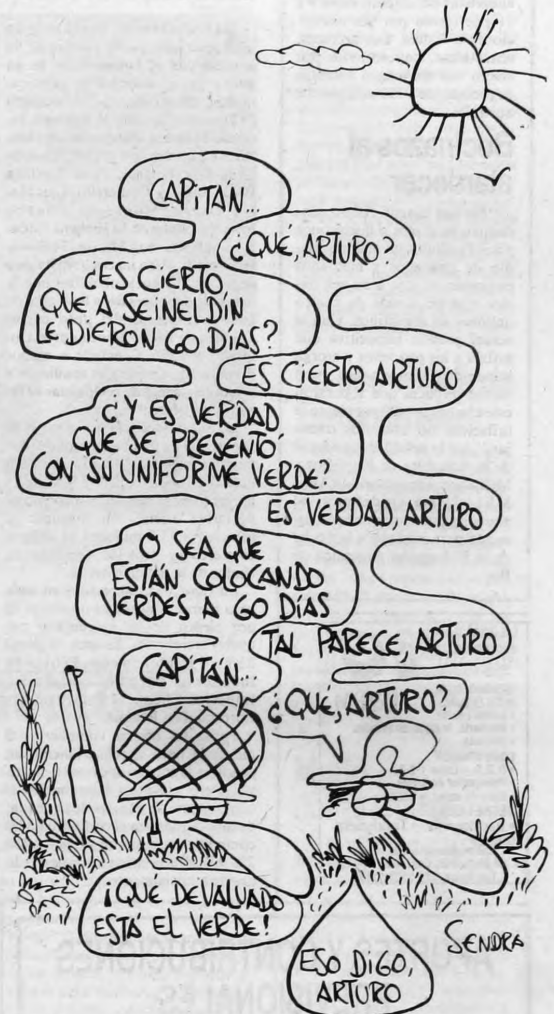 CAPITÁN...
¿QUÉ, ARTURO?
¿ES CIERTO
QUE A SEINELDÍN
LE DIERON 60 DÍAS?
ES CIERTO, ARTURO
¿Y ES VERDAD
QUE SE PRESENTÓ
CON SU UNIFORME VERDE?
ES VERDAD, ARTURO
O SEA QUE
ESTÁN COLOCANDO
VERDES A 60 DÍAS
TAL PARECE, ARTURO
CAPITÁN...
¿QUÉ, ARTURO?
¡QUÉ DEVALUADO
ESTÁ EL VERDE!
ESO DIGO,
ARTURO
SENDRA